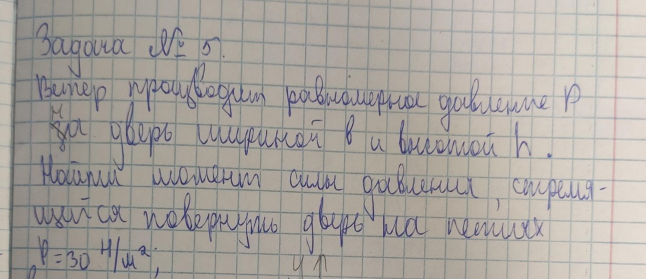 Задача № 5.
Ветер производит равномерное давление P
на дверь шириной b и высотой h.
Найти момент силы давления, стремя-
щийся повернуть дверь на петлях
P=30 Н/м²;